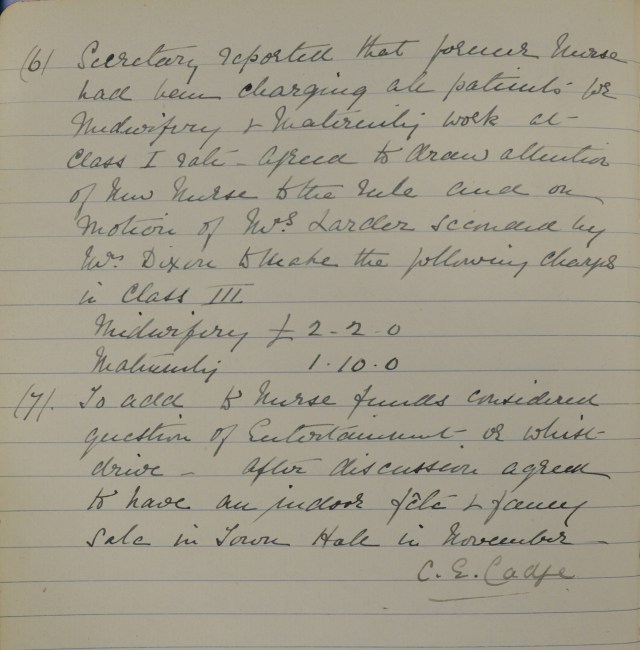 (6) Secretary reported that former Nurse
had been charging all patients for
Midwifery & Maternity work at
Class I rate - Agreed to draw attention
of New Nurse to the rule and on
Motion of Mrs Larder seconded by
Mrs Dixon to make the following charges
in Class III
Midwifery £ 2-2-0
Maternity 1.10.0
(7). To add to Nurse funds considered
question of Entertainment or whist
drive - after discussion agreed
to have an indoor fête & fancy
Sale in Town Hall in November -
C. E.